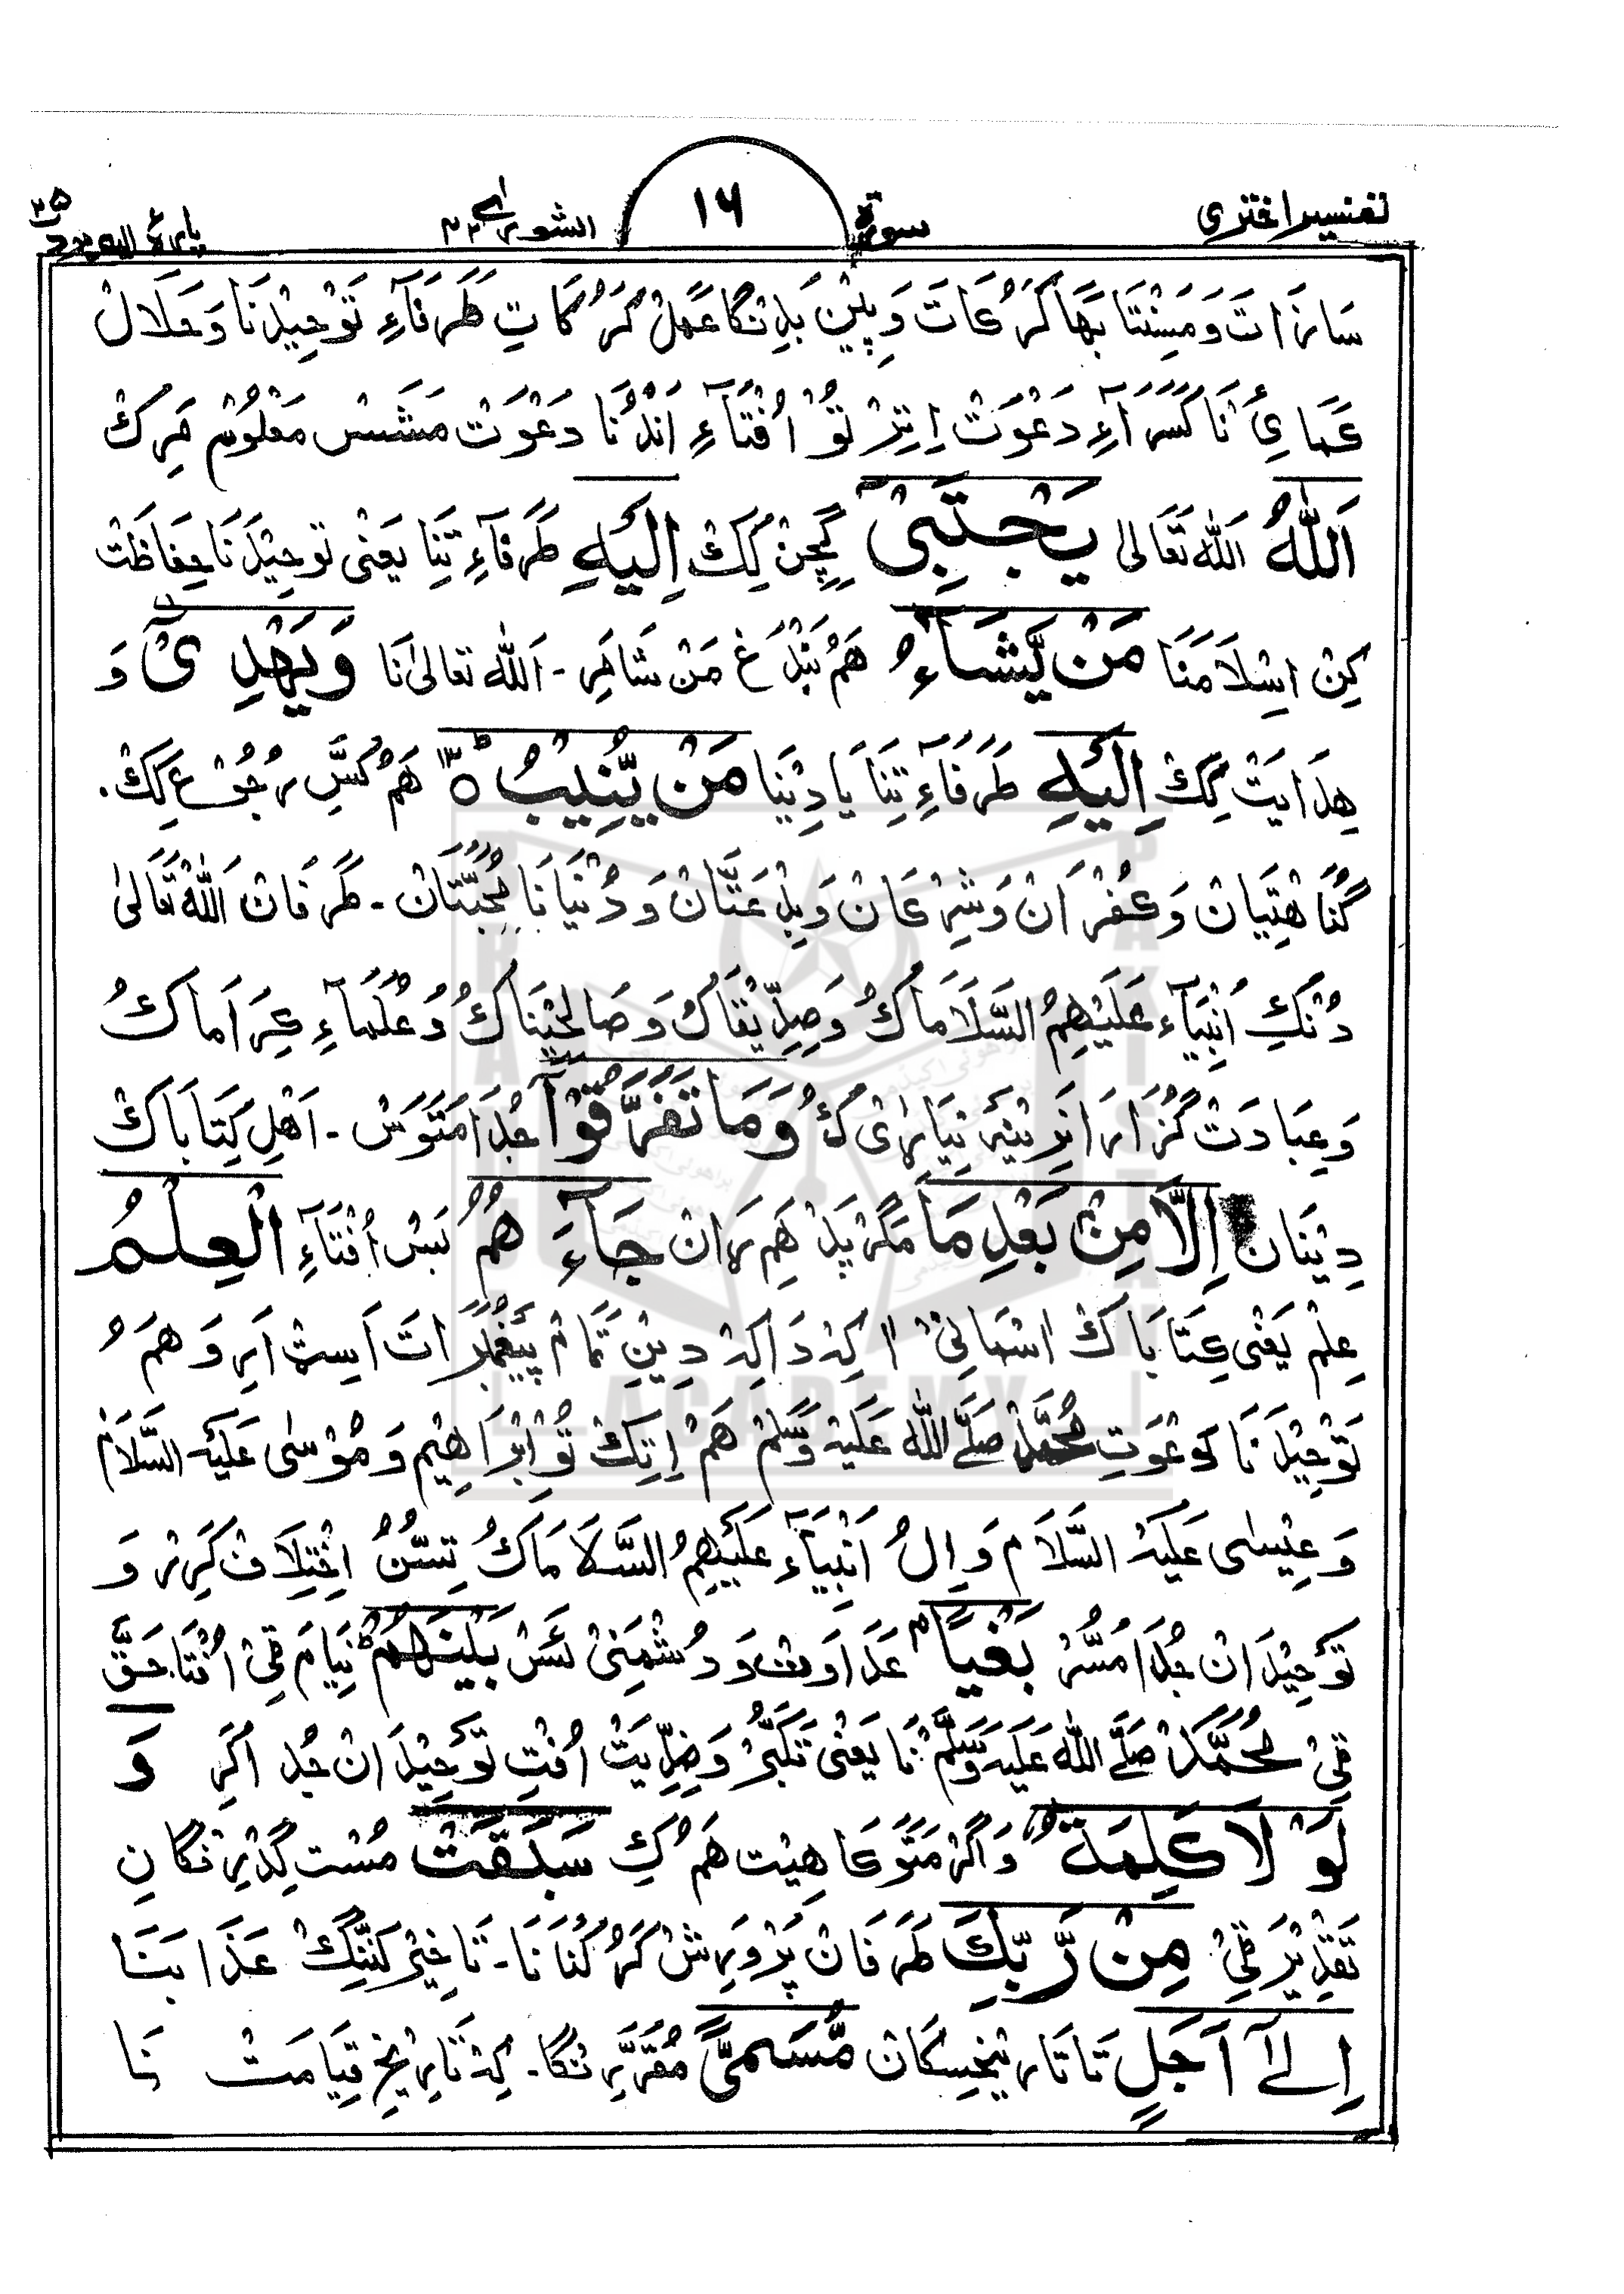 تفسیر اختری سورة ۱۶ الشوریٰ ۴۲ پارہ الیہ یرد ۲۵
سَازَاتَ وَمَسِنْتَا بَھا كَرُكَاتَ وَپِیْنِ بَدِنْگا عَمَلْ كَرُكَاتِ طَرَفَآءِ تَوْحِیْدَنَا وَحَلَالْ
عَمَائِ نَا كَسَرَآءِ دَعْوَتْ اِتِرْ تُوْ اُفْتَآءِ اَنْدُنَا دَعْوَتْ مَشَسْ مَعْلُوْم مَرِكْ
اَللّٰهُ اَللّٰه تَعَالیٰ یَجْتَبِیْۤ گِچِنْ كِكْ اِلَیْهِ طَرَفَآءِ تِنَا یَعْنِی تَوحِیْدَنَا حِفَاظَتْ
كِنْ اِسْلَامَنَا مَنْ یَّشَآءُ هَمُ بَنْدَغ مَنْ شَاهِرِ - اَللّٰه تعالیٰ نَا وَیَهْدِیْۤ وَ
هِدَایَتْ كِكْ اِلَیْهِ طَرَفَآءِ تِنَا یَا دِیْنَا مَنْ یُّنِیْبُ ؕ۱۳ هَمُ كَسَّرِ رُجُوْع كِكْ.
گُنَاهْتِیَانْ وَكُفْرَانْ وَشِرْكَانْ وَبِدْعَتَّانْ وَدُنْیَانَا مُحَبَّتَانْ - طَرَفَانْ اَللّٰهُ تَعَالیٰ
دُنْكِ اَنْبِیَآء عَلَیْهِمُ السَّلَامَاكُ وَصِدِّیْقَاكُ وَصَالِحْیْنَاكُ وَعُلَمَاءِ كِرَامَاكُ
وَعِبَادَتْ گُزَارَا وَمَا تَفَرَّقُوْۤا جُدَا مَتَوَسْ - اَهْلِ كِتَابَاكْ
دِیْنَانْ اِلَّا مِنْۢ بَعْدِ مَا مَگَرْ پَدْ هَمِرَانْ جَآءَ هُمُ بَسُ اُفْتَآءِ الْعِلْمُ
عِلْم یَعْنِی كِتَابَاكْ اسْمَانِیْ اكِهْ دَاكِهْ دِیْنِ تَمَامْ پَیْغَمْبَرَاتَ اَسِتْ اَرِ وَهَمُ
تَوْحِیْدَنَا دَعْوَتِ مُحَمَّدْ صَلَّے اللّٰه عَلَیْهِ وَسَّلَمْ هَمْ اِتِكْ تُوْ اِبْرَاهِیْم وَمُوْسٰی عَلَیْهِ السَّلَامْ
وَعِیْسٰی عَلَیْهِ السَّلَام وَاِلُ اَنْبِیَآء عَلَیْهِمُ السَّلَامَاكُ تِسَّنُ اخْتِلَافْ كَرِرْ وَ
تَوْحِیْدَانْ جُدَا مَسُّرْ بَغْیًاۢ عَدَاوَتْ وَدُشْمَنِیْ ئَسْ بَیْنَهُمْ ؕ نِیَامَ قِیْ اُفْتَا حَقَّ
قِیْ مُحَمَّدْ صَلَّے اللّٰه عَلَیْه وَسَلَّمْ نَا یَعْنِی تَكَبُّرْ وَضِدِّیَتْ اُفْتِ تَوْحِیْدَانْ جُدا كَرِ وَ
لَوْ لَا كَلِمَةٌ وَاگَرْ مَتَوَكَا هِیْت هَمُ كِ سَبَقَتْ مُسْت گِدْرِنْگانِ
تَقْدِیْرَ قِیْ مِنْ رَّبِّكَ طَرَفَانْ پَرْوَرِشْ كَرُكُنَانَا - تَاخِیْر كَنِّنْگِكْ عَذَابَنَا
اِلٰۤی اَجَلٍ تَا تَارِیْخِسِكَانْ مُّسَمًّی مُقَرَّرِنْگا - كِهْ تَارِیْخِ قِیَامَتْ نَا